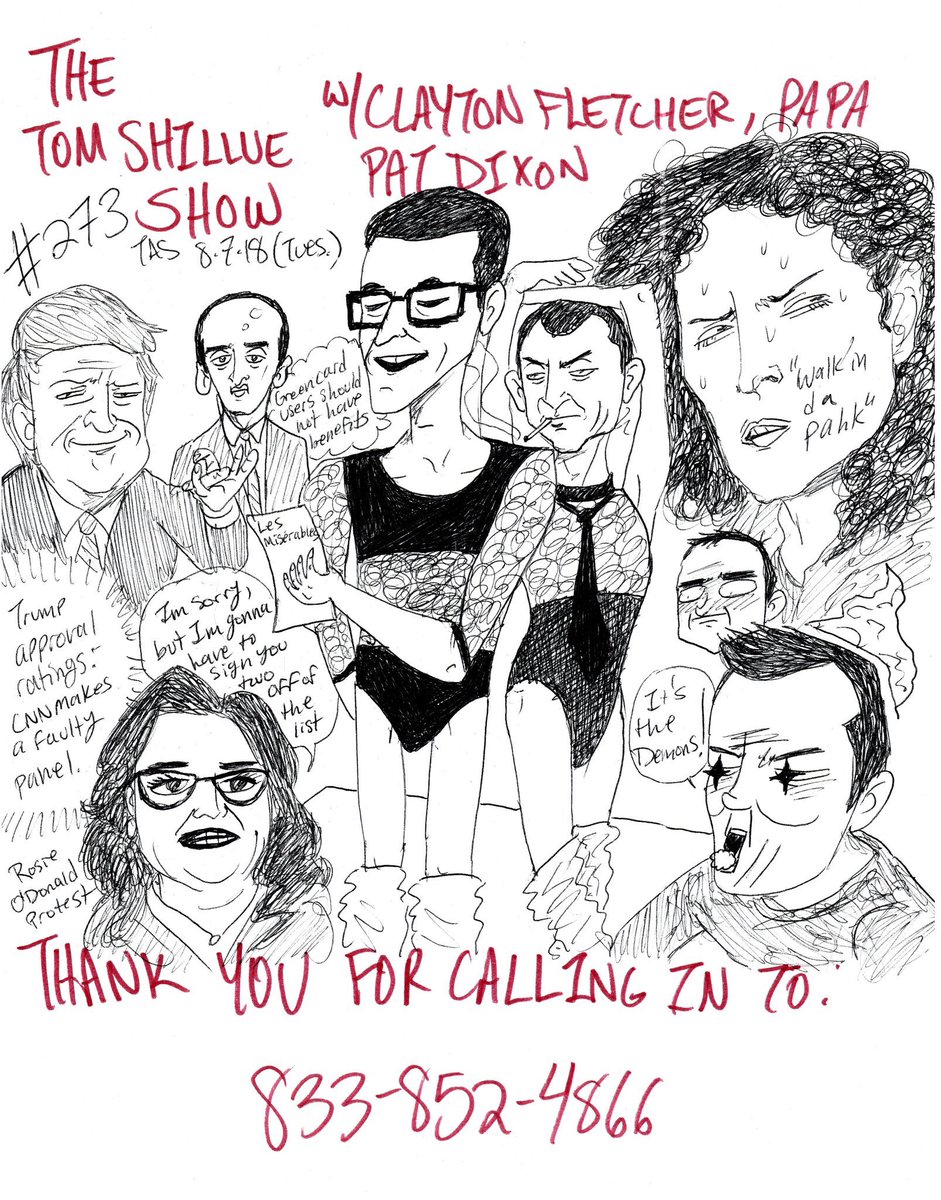 THE
TOM SHILLUE
SHOW
W/CLAYTON FLETCHER, PAPA
PAT DIXON
#273
TAS 8.7.18 (TUES.)
Green card
users should
not have
benefits
"Walk in
da
pahk"
Les
Misérables
Trump
approval
ratings:
CNN makes
a faulty
panel.
I'm sorry,
but I'm gonna
have to
sign you
two
off of
the
list
It's
the
Demons.
Rosie
O'Donald
Protest
THANK YOU FOR CALLING IN TO:
833-852-4866